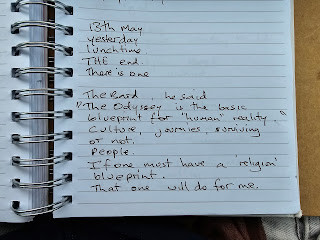 13th May
yesterday
lunchtime
THE end.
There is one
The , he said
"The Odyssey is the basic
blueprint for 'human' reality."
Culture, journies, surviving
or not.
People.
If one must have a 'religion'
blueprint.
That one will do for me.